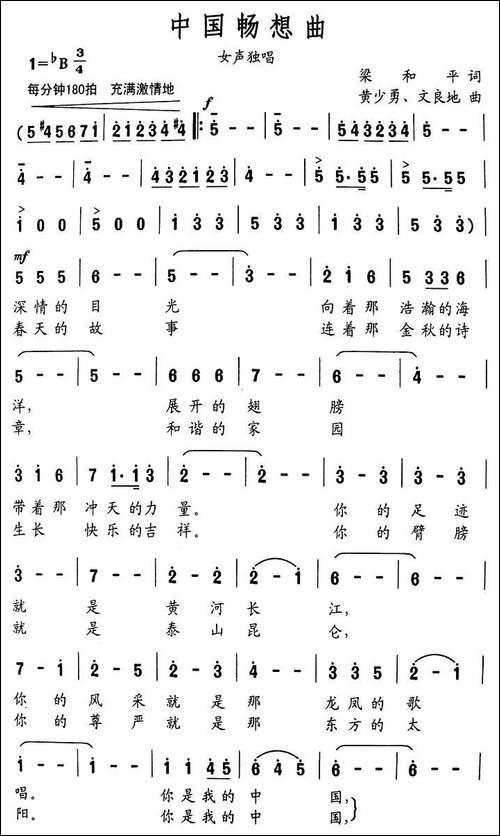 中国畅想曲
女声独唱
1=♭B 3/4
梁和平 词
每分钟180拍 充满激情地
黄少勇、文良地 曲
f
(5 #4 5 6 7 1̇ | 2̇ 1̇ 2̇ 3̇ 4̇ #4̇ ‖: 5̇ - - | 5̇ - - | 5̇ 4̇ 3̇ 2̇ 3̇ 4̇ | 5̇ - - |
4̇ - - | 4̇ - - | 4̇ 3̇ 2̇ 1̇ 2̇ 3̇ | 4̇ - - | 5̇ 5̇·5̇ 5̇ | 5 5·5 5 |
1̇ 0 0 | 5 0 0 | 1̇ 3̇ 3̇ | 5 3̇ 3̇ | 1̇ 3̇ 3̇ | 5 3̇ 3̇ )
mf
5 5 5 | 6 - - | 5 - - | 3 - - | 2̇ 1̇ 6 | 5 3 3 6 |
深情的 目 光 向着那 浩瀚的海
春天的 故 事 连着那 金秋的诗
5 - - | 5 - - | 6 6 6 | 7 - - | 6 - - | 4 - - |
洋, 展开的 翅 膀
章, 和谐的 家 园
3 1̇ 6 | 7 1̇·1̇ 3 | 2̇ - - | 2̇ - - | 3̇ - 3̇ | 3̇ - 3̇ |
带着那 冲天的力 量。 你 的 足 迹
生长 快乐的吉 祥。 你 的 臂 膀
3̇ - - | 7 - - | 2̇ - 2̇ | 2̇ - 1̇ | 6 - - | 6 - - |
就 是 黄 河 长 江,
就 是 泰 山 昆 仑,
7 - 1̇ | 2̇ - 5 | 2̇ - 3̇ | 4̇ - - | 3̇ 3̇ 5 | 2̇ - 1̇ |
你 的 风 采 就 是 那 龙凤的 歌
你 的 尊 严 就 是 那 东方的 太
1̇ - - | 1̇ - - | 1̇ 1̇ 4̇ 5̇ | 6̇ 4̇ 5̇ | 6̇ - - | 6̇ - - |
唱。 你是我的 中 国,
阳。 你是我的 中 国,